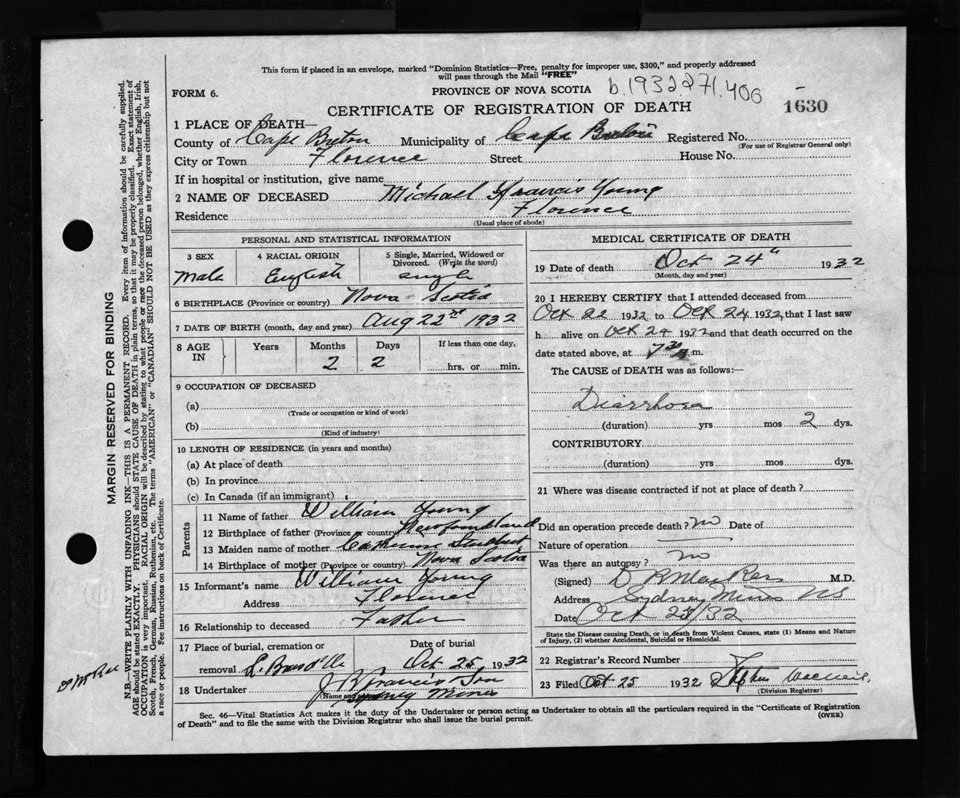 This form if placed in an envelope, marked "Dominion Statistics—Free, penalty for improper use, $300," and properly addressed
will pass through the Mail "FREE"
FORM 6.
PROVINCE OF NOVA SCOTIA b.1932 271.406
CERTIFICATE OF REGISTRATION OF DEATH 1630
1 PLACE OF DEATH—
County of Cape Breton Municipality of Cape Breton Registered No.
(For use of Registrar General only)
City or Town Florence Street House No.
If in hospital or institution, give name
2 NAME OF DECEASED Michael Francis Young
Residence Florence
(Usual place of abode)
PERSONAL AND STATISTICAL INFORMATION
3 SEX 4 RACIAL ORIGIN 5 Single, Married, Widowed or
Divorced. (Write the word)
Male English Single
6 BIRTHPLACE (Province or country) Nova Scotia
7 DATE OF BIRTH (month, day and year) Aug 22nd 1932
8 AGE IN Years Months Days If less than one day,
2 2 hrs. or min.
9 OCCUPATION OF DECEASED
(a)
(Trade or occupation or kind of work)
(b)
(Kind of industry)
10 LENGTH OF RESIDENCE (in years and months)
(a) At place of death
(b) In province
(c) In Canada (if an immigrant)
Parents
11 Name of father William Young
12 Birthplace of father (Province or country) Newfoundland
13 Maiden name of mother Catherine
14 Birthplace of mother (Province or country) Nova Scotia
15 Informant's name William Young
Address Florence
16 Relationship to deceased Father
17 Place of burial, cremation or Date of burial
removal L. Bras d'Or Oct 25, 1932
18 Undertaker J B Francis Son
(Name and Sydney Mines
MEDICAL CERTIFICATE OF DEATH
19 Date of death Oct 24" 1932
(Month, day and year)
20 I HEREBY CERTIFY that I attended deceased from
Oct 22 1932 to Oct 24 1932, that I last saw
h alive on Oct 24 1932 and that death occurred on
date stated above, at m.
The CAUSE of DEATH was as follows:—
Diarrhoea
(duration) yrs mos 2 dys.
CONTRIBUTORY
(duration) yrs. mos. dys.
21 Where was disease contracted if not at place of death?
Did an operation precede death? no Date of
Nature of operation
Was there an autopsy? no
(Signed) M.D.
Address Sydney Mines NS
Date Oct 25/32
State the Disease causing Death, or in death from Violent Causes, state (1) Means and Nature
of Injury, (2) whether Accidental, Suicidal or Homicidal.
22 Registrar's Record Number
23 Filed Oct 25 1932 Stephen
(Division Registrar)
Sec. 46—Vital Statistics Act makes it the duty of the Undertaker or person acting as Undertaker to obtain all the particulars required in the "Certificate of Registration
of Death" and to file the same with the Division Registrar who shall issue the burial permit. (OVER)
MARGIN RESERVED FOR BINDING
N.B.—WRITE PLAINLY WITH UNFADING INK—THIS IS A PERMANENT RECORD. Every item of information should be carefully supplied.
AGE should be stated EXACTLY. PHYSICIANS should STATE CAUSE OF DEATH in plain terms, so that it may be properly classified. Exact statement of
OCCUPATION is very important. RACIAL ORIGIN will be described by stating to what people or race the deceased person belonged, whether English, Irish,
Scotch, French, German, Russian, Ruthenian, etc. The terms "AMERICAN" or "CANADIAN" SHOULD NOT BE USED as they express citizenship but not
a race or people. See instructions on back of Certificate.